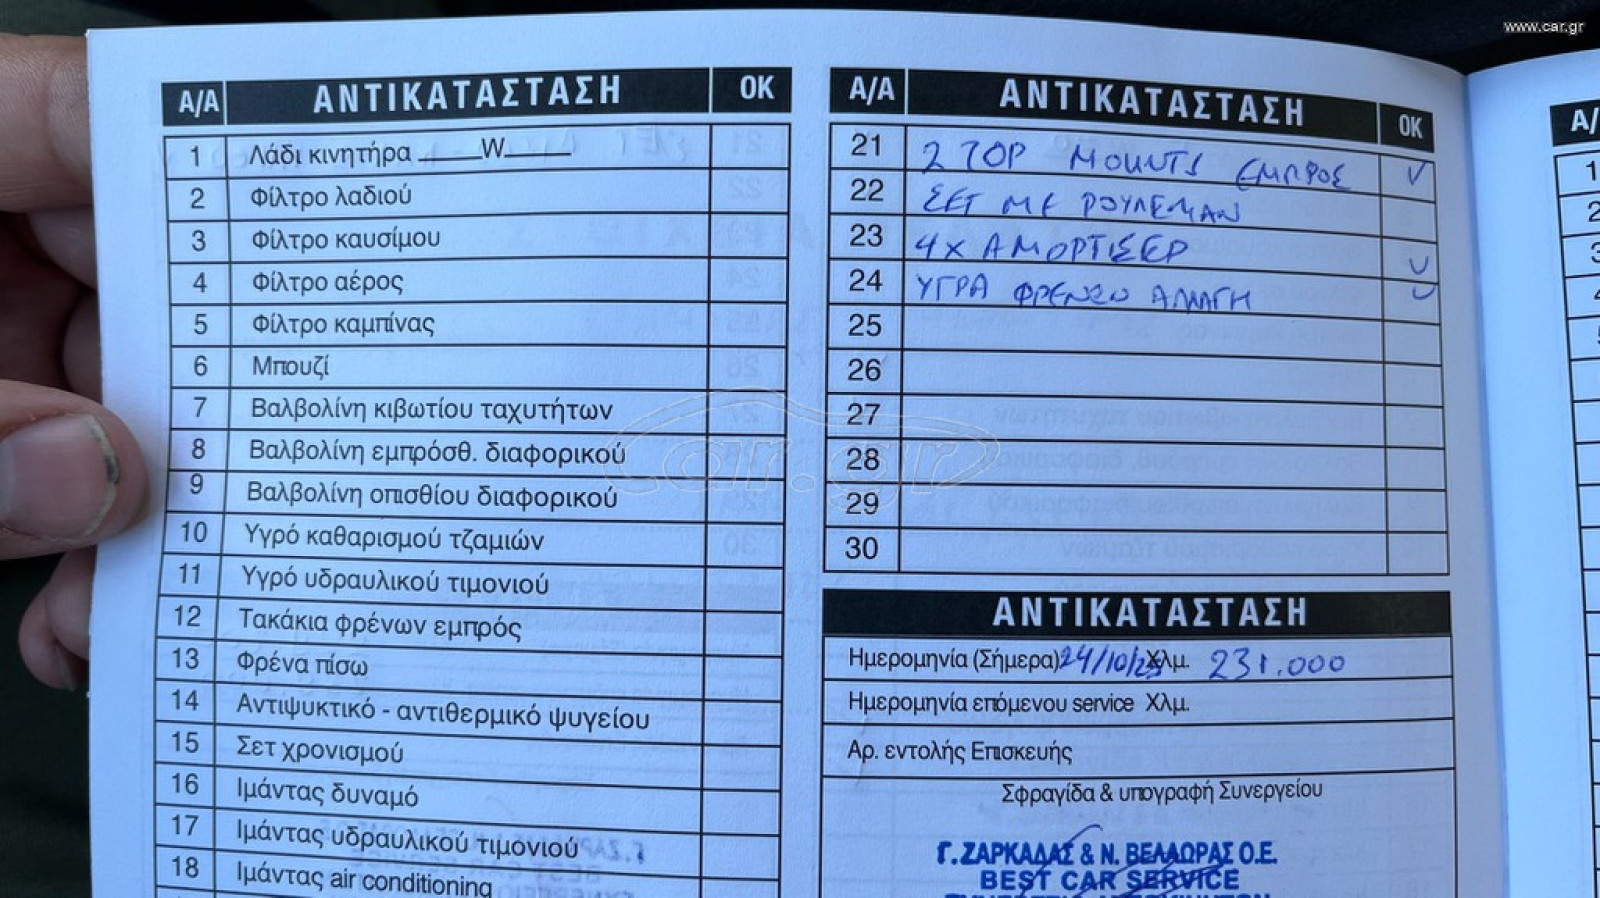 www.car.gr
Α/Α ΑΝΤΙΚΑΤΑΣΤΑΣΗ ΟΚ
1 Λάδι κινητήρα ____W____
2 Φίλτρο λαδιού
3 Φίλτρο καυσίμου
4 Φίλτρο αέρος
5 Φίλτρο καμπίνας
6 Μπουζί
7 Βαλβολίνη κιβωτίου ταχυτήτων
8 Βαλβολίνη εμπρόσθ. διαφορικού
9 Βαλβολίνη οπισθίου διαφορικού
10 Υγρό καθαρισμού τζαμιών
11 Υγρό υδραυλικού τιμονιού
12 Τακάκια φρένων εμπρός
13 Φρένα πίσω
14 Αντιψυκτικό - αντιθερμικό ψυγείου
15 Σετ χρονισμού
16 Ιμάντας δυναμό
17 Ιμάντας υδραυλικού τιμονιού
18 Ιμάντας air conditioning
Α/Α ΑΝΤΙΚΑΤΑΣΤΑΣΗ ΟΚ
21 2 TOP MOUNTS ΕΜΠΡΟΣ ✓
22 ΣΕΤ ΜΕ ΡΟΥΛΕΜΑΝ
23 4X ΑΜΟΡΤΙΣΕΡ ✓
24 ΥΓΡΑ ΦΡΕΝΩΝ ΑΛΛΑΓΗ ✓
25
26
27
28
29
30
ΑΝΤΙΚΑΤΑΣΤΑΣΗ
Ημερομηνία (Σήμερα) 24/10/23 Χλμ. 231.000
Ημερομηνία επόμενου service Χλμ.
Αρ. εντολής Επισκευής
Σφραγίδα & υπογραφή Συνεργείου
Γ. ΖΑΡΚΑΔΑΣ & Ν. ΒΕΛΛΩΡΑΣ Ο.Ε.
BEST CAR SERVICE
car.gr
Α/
1
2
3
4
5